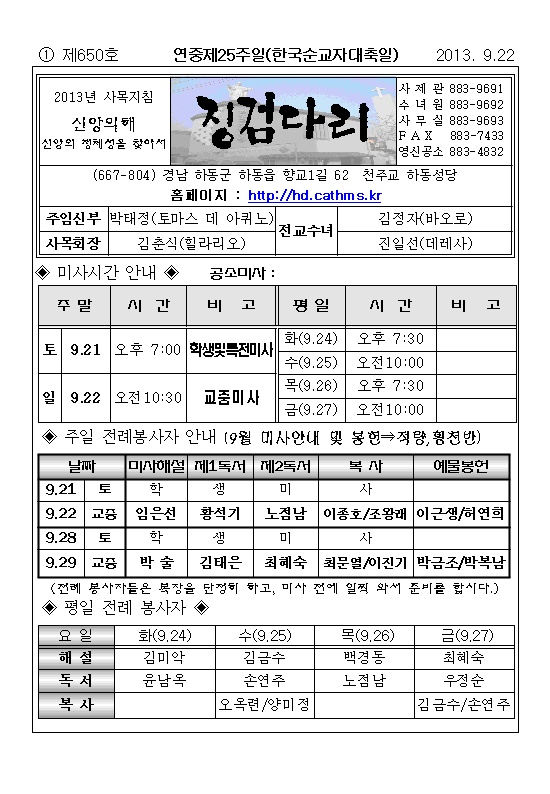 ① 제650호 연중제25주일(한국순교자대축일) 2013. 9.22
2013년 사목지침
신앙의해
신앙의 정체성을 찾아서
징검다리
사 제 관 883-9691
수 녀 원 883-9692
사 무 실 883-9693
F A X 883-7433
영신공소 883-4832
(667-804) 경남 하동군 하동읍 향교1길 62 천주교 하동성당
홈페이지 : http://hd.cathms.kr
주임신부 박태정(토마스 데 아퀴노) 전교수녀 김정자(바오로)
사목회장 김춘식(힐라리오) 진일선(데레사)
◈ 미사시간 안내 ◈ 공소미사 :
주 말 시 간 비 고 평 일 시 간 비 고
토 9.21 오후 7:00 학생및특전미사 화(9.24) 오후 7:30
수(9.25) 오전10:00
일 9.22 오전10:30 교중미사 목(9.26) 오후 7:30
금(9.27) 오전10:00
◈ 주일 전례봉사자 안내 (9월 미사안내 및 봉헌⇒적량,횡천반)
날짜 미사해설 제1독서 제2독서 복 사 예물봉헌
9.21 토 학 생 미 사
9.22 교중 임은선 황석기 노점남 이종호/조왕래 이근생/허연희
9.28 토 학 생 미 사
9.29 교중 박 술 김태은 최혜숙 최문열/이진기 박금조/박복남
(전례 봉사자들은 복장을 단정히 하고, 미사 전에 일찍 와서 준비를 합시다.)
◈ 평일 전례 봉사자 ◈
요 일 화(9.24) 수(9.25) 목(9.26) 금(9.27)
해 설 김미악 김금수 백경동 최혜숙
독 서 윤남옥 손연주 노점남 우정순
복 사 오옥련/양미정 김금수/손연주